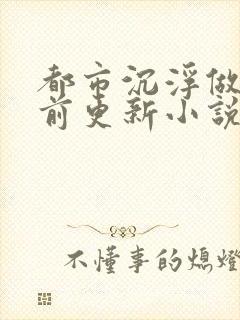 都市沉浮做
前更新小說
不懂事的熄燈